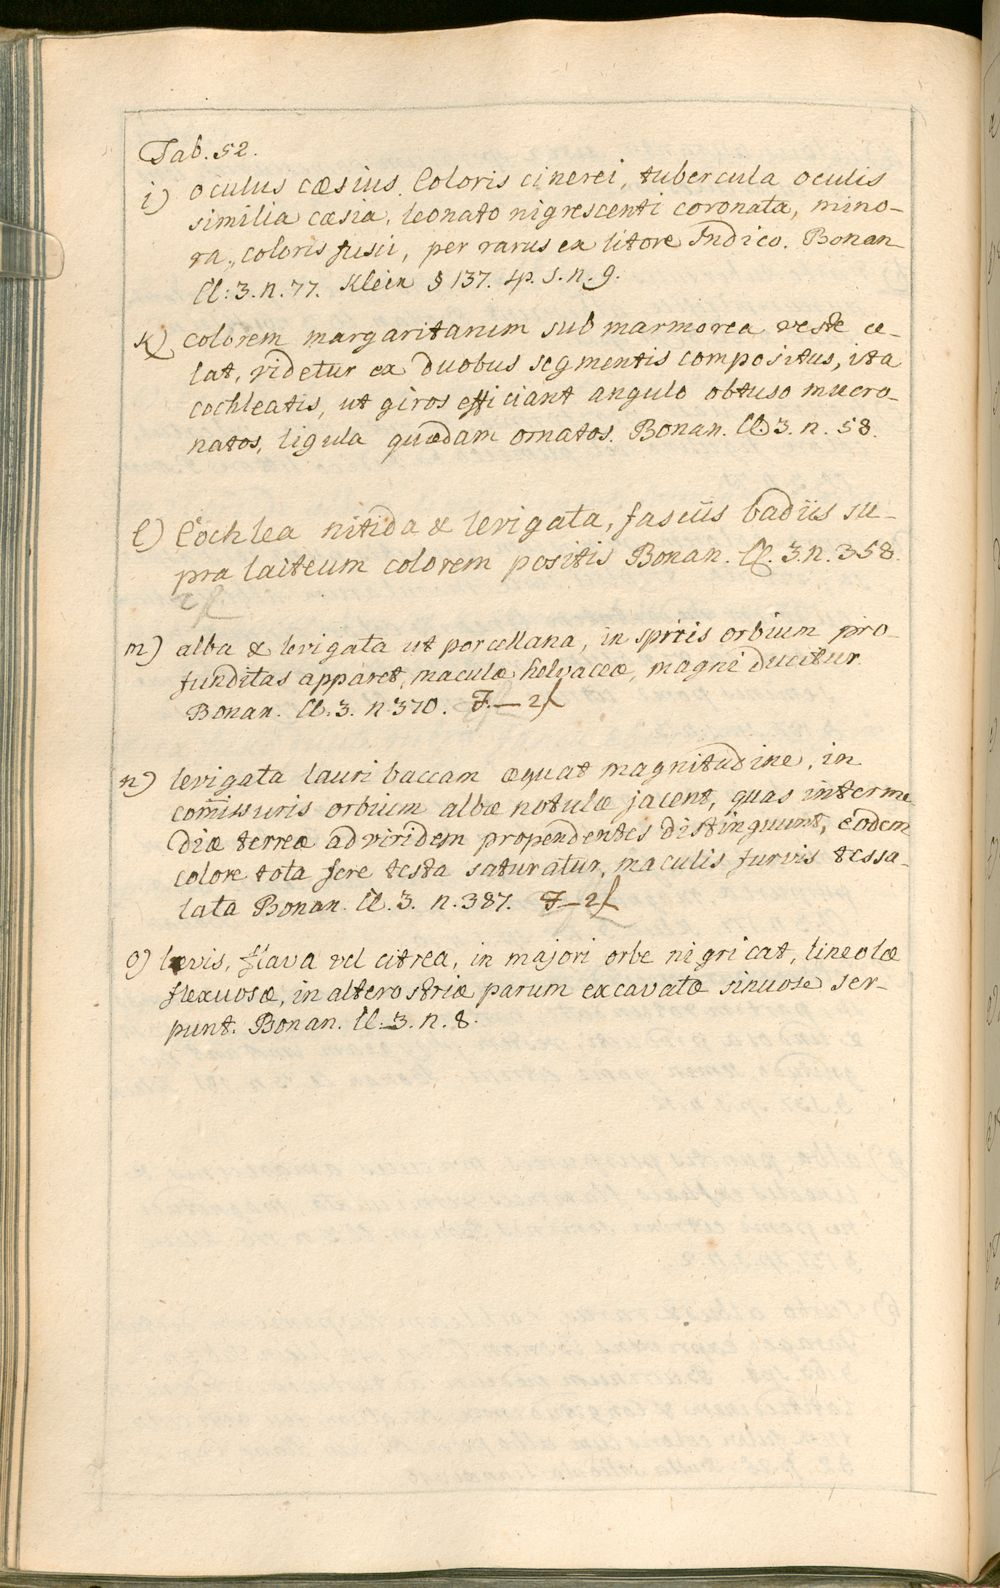 Tab. 52.
i) oculus cæsius. Coloris cinerei, tubercula oculis
similia cæsia, leonato nigrescenti coronata, mino-
ra, coloris fusii, per rarus ex litore Indico. Bonan
Cl: 3. n. 77. Klein § 137. sp. 1. n. 9.
k) colorem margaritanum sub marmorea veste ce-
lat, videtur ex duobus segmentis compositus, ita
cochleatis, ut giros efficiant angulo obtuso mucro-
natos, ligula quædam ornatos. Bonan. Cl. 3. n. 58.
l) Cochlea nitida & levigata, fasciis badiis su-
pra laiteum colorem positis Bonan. Cl. 3. n. 358.
m) alba & levigata ut porcellana, in spiris orbium pro-
funditas apparet, maculæ helvaceæ, magni ducitur.
Bonan. Cl. 3. n. 370. F. — 2
n) levigata lauri baccam æquat magnitudine, in
com̄issuris orbium albæ notulæ jacent, quas interme
diæ terreæ ad viridem propendentes distinguunt, eodem
colore tota fere testa saturatur, maculis furvis tessa-
lata Bonan. Cl. 3. n. 387. F — 2
o) lævis, flava vel citrea, in majori orbe nigricat, lineolæ
flexuosæ, in altero striæ parum excavatæ sinuose ser-
punt. Bonan. Cl. 3. n. 8.